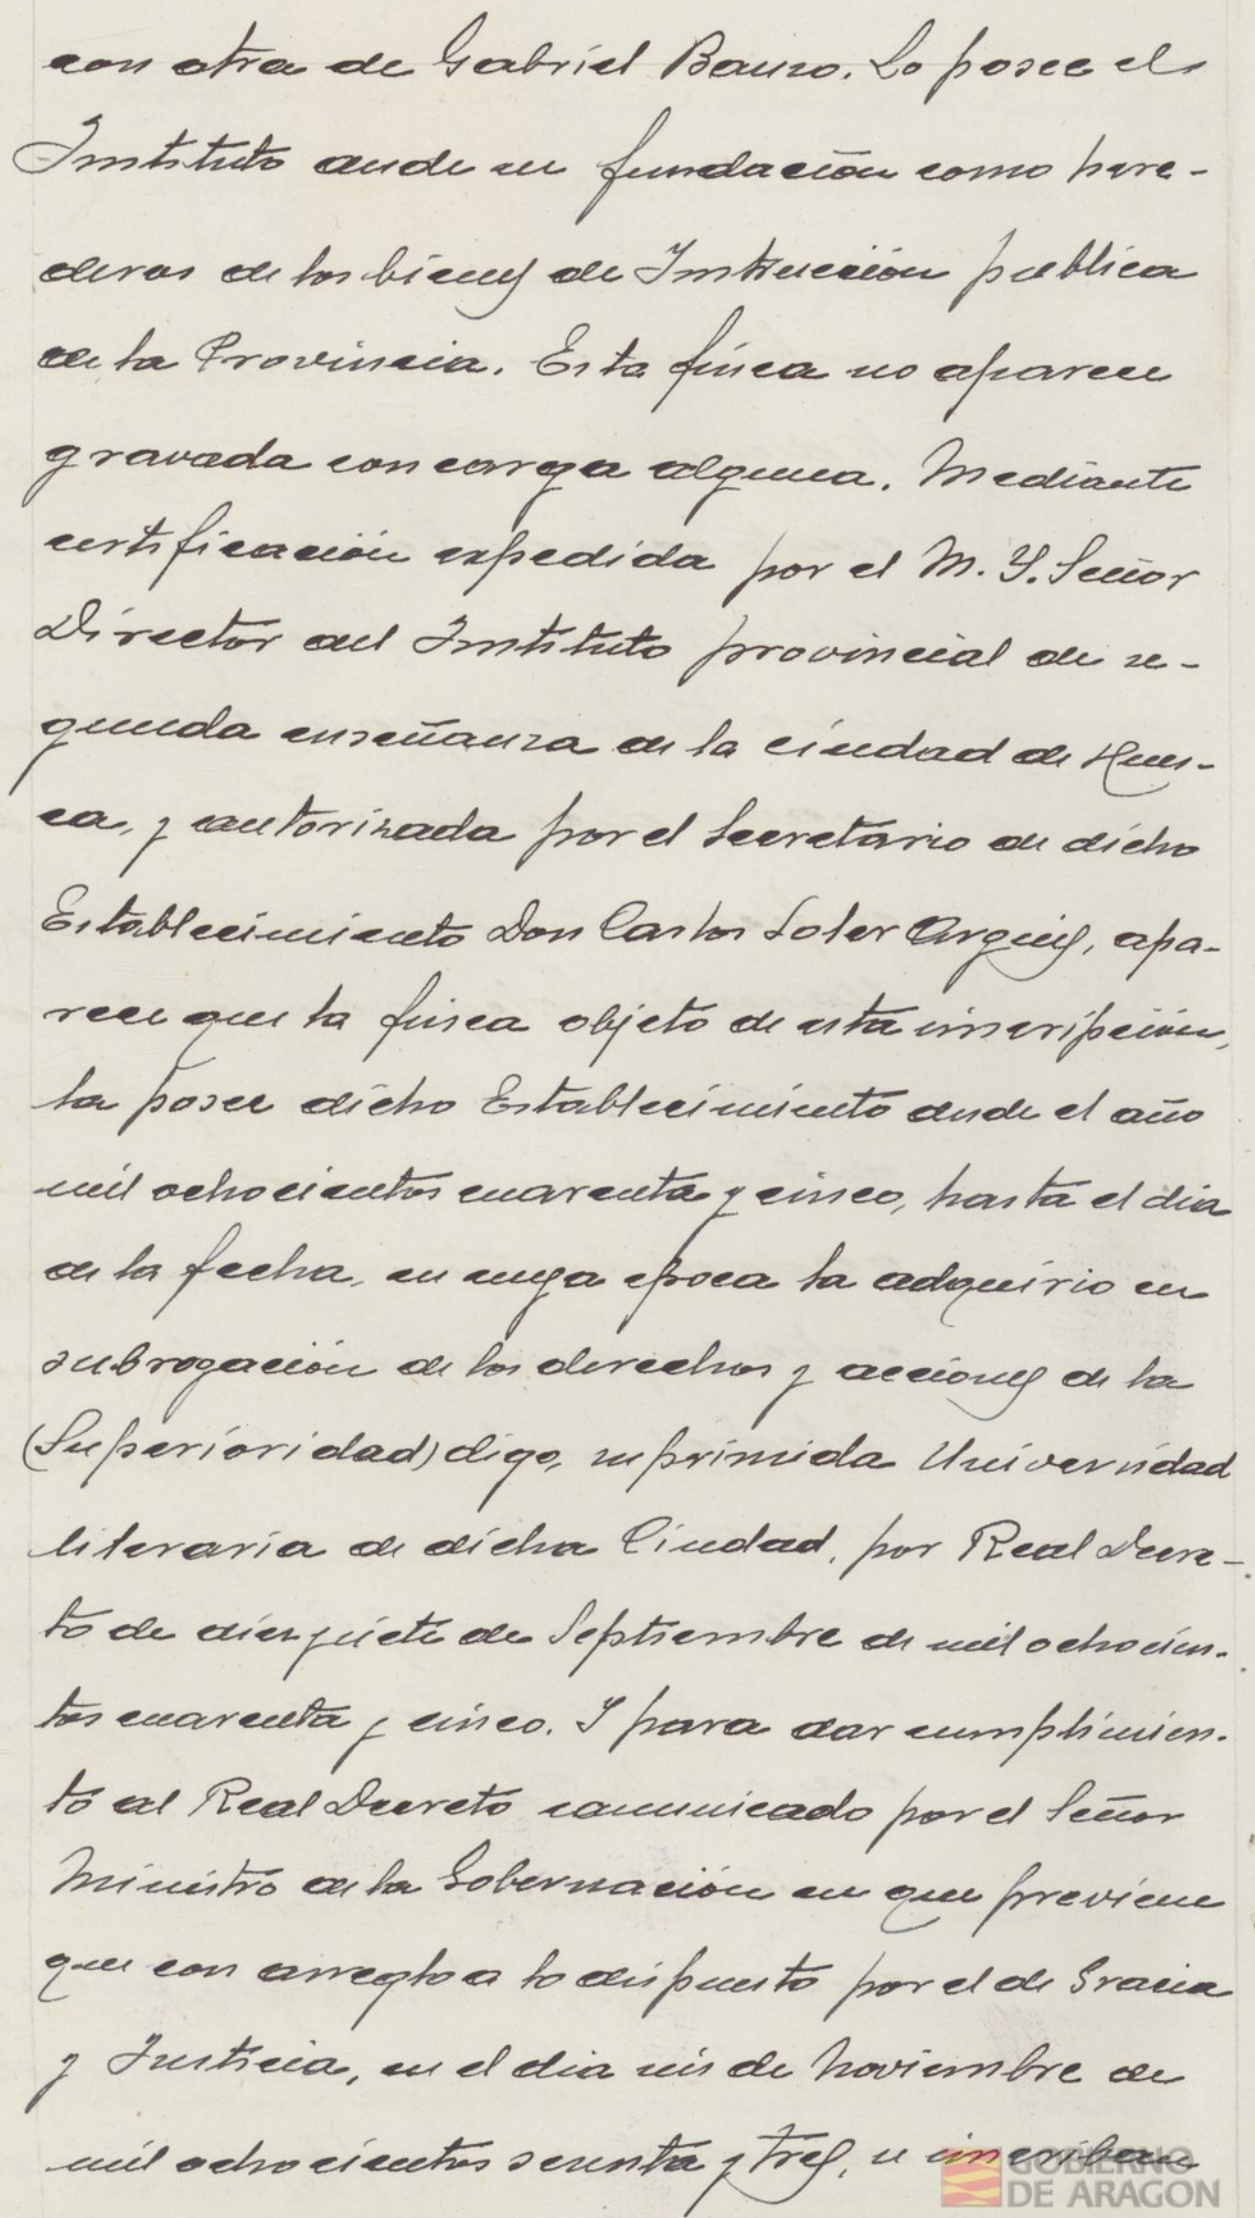 con otra de Gabriel Bauzo. Lo posee el
Instituto desde su fundación como here-
deros de los bienes de Instrucción publica
de la Provincia. Esta finca no aparece
gravada con carga alguna. Mediante
certificación expedida por el M. Y. Señor
Director del Instituto provincial de se-
gunda enseñanza de la ciudad de Hues-
ca, y autorizada por el Secretario de dicho
Establecimiento Don Carlos Soler Arques, apa-
rece que la finca objeto de esta inscripción,
la posee dicho Establecimiento desde el año
mil ochocientos cuarenta y cinco, hasta el dia
de la fecha, en cuya epoca la adquirio en
subrogación de los derechos y acciones de la
(Superioridad) digo, suprimida Universidad
literaria de dicha Ciudad, por Real Decre-
to de diez y siete de Septiembre de mil ochocien-
tos cuarenta y cinco. Y para dar cumplimien-
to al Real Decreto comunicado por el Señor
Ministro de la Gobernación en que previene
que con arreglo a lo dispuesto por el de Gracia
y Justicia, en el dia seis de Noviembre de
mil ochocientos sesenta y tres, se inscriban
GOBIERNO
DE ARAGON